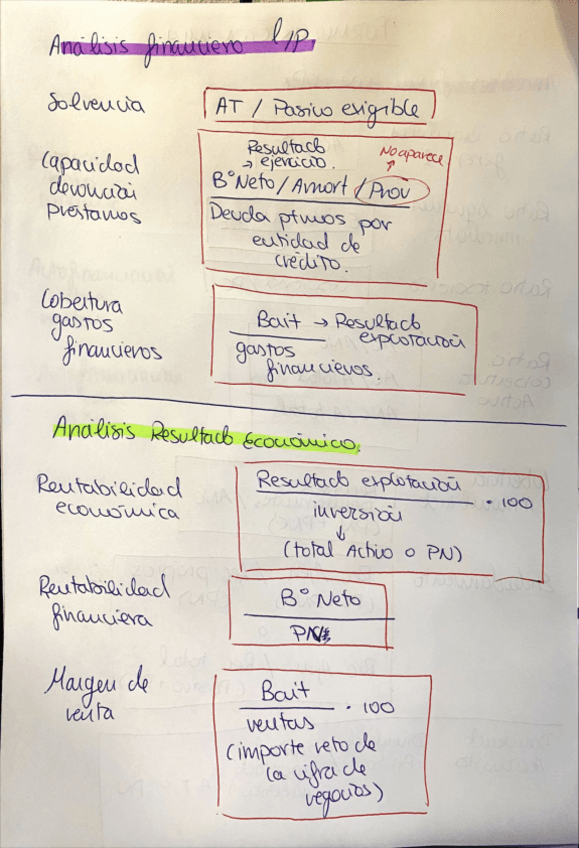 Análisis financiero l/p
Solvencia
AT / Pasivo exigible
Capacidad
devolución
préstamos
Resultado
→ ejercicio.
No aparece
Bº Neto / Amort / Prov
Deuda ptmos por
entidad de
crédito.
Cobertura
gastos
financieros
Bait → Resultado
explotación
gastos
financieros
Análisis Resultado Económico.
Rentabilidad
económica
Resultado explotación
· 100
inversión
↓
(total Activo o PN)
Rentabilidad
financiera
Bº Neto
PN
Margen de
venta
Bait
· 100
ventas
(importe neto de
la cifra de
negocios)